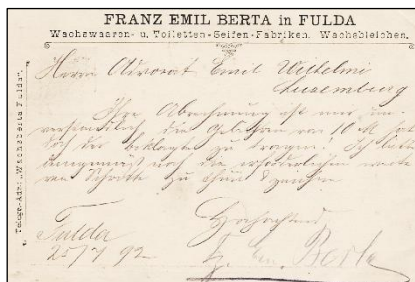 FRANZ EMIL BERTA in FULDA
Wachswaaren- u. Toiletten-Seifen-Fabriken. Wachsbleichen.
Telegr.-Adr.: "Wachsberta Fulda".
Herrn Advocat Emil Wilhelmi
Luxemburg
Ihre Abrechnung ist mir un-
verständlich die Gebühren von 10 M hat
doch der beklagte zu tragen! Ich bitte
demgemäss noch die erforderlichen weite
ren Schritte zu thun & zeichne
Hochachtend
Fulda
25/7 92
Berta